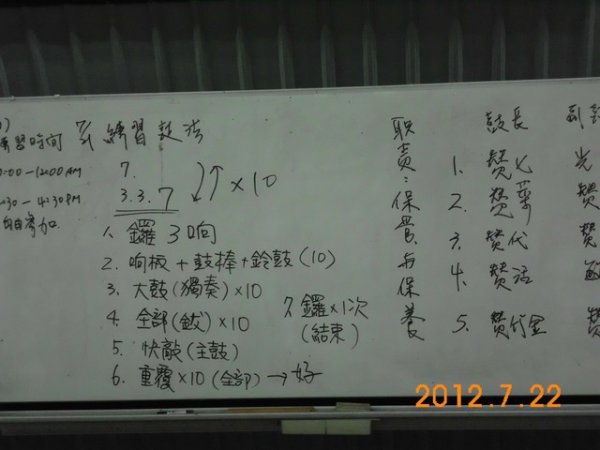 練習時間
00-12:00 AM
:30-4:30 PM
自由參加
7/21 練習鼓法
7.
3.3.7 ×10
1. 鑼3响
2. 响板+鼓捧+鈴鼓(10)
3. 大鼓(獨奏)×10
4. 全部(鈸)×10
5. 快敲(主鼓)
6. 重覆×10(全部)→好
7. 鑼×1次
(結束)
职責:保管与保養
鼓長
1. 贊
2. 贊
3. 贊代
4. 贊活
5. 贊
副
光
贊
贊
贊
2012.7.22